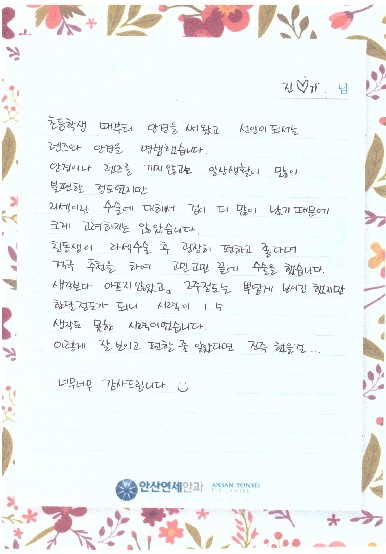 진♡가. 님
초등학생 때부터 안경을 써왔고 성인이 되서는
렌즈와 안경을 병행했습니다.
안경이나 렌즈를 끼지않고는 일상생활이 많이
불편한 정도였지만
라섹이란 수술에 대해서 겁이 더 많이 났기 때문에
크게 고려하지는 않았습니다.
친동생이 라섹수술 후 굉장히 편하고 좋다며
적극 추천을 하여 고민고민 끝에 수술을 했습니다.
생각보다 아프지 않았고, 2주정도는 뿌옇게 보이긴 했지만
한달정도가 되니 시력이 1.5
생각도 못한 시력이었습니다.
이렇게 잘 보이고 편할 줄 알았다면 진즉 했을걸...
너무너무 감사드립니다
안산연세안과 ANSAN YONSEI
EYE CENTER